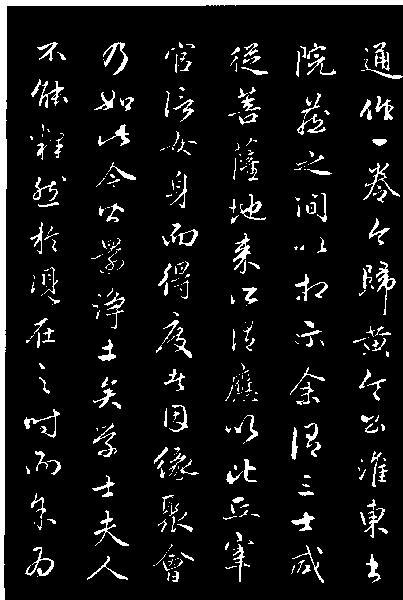 通作一卷今歸黃令公淮東書
院之間以相示余謂三士咸
從菩薩地來所謂應以比丘宰
官婦女身而得度者因緣聚會
乃如此令公淨土矣學士夫人
不能釋然於現在之時而為